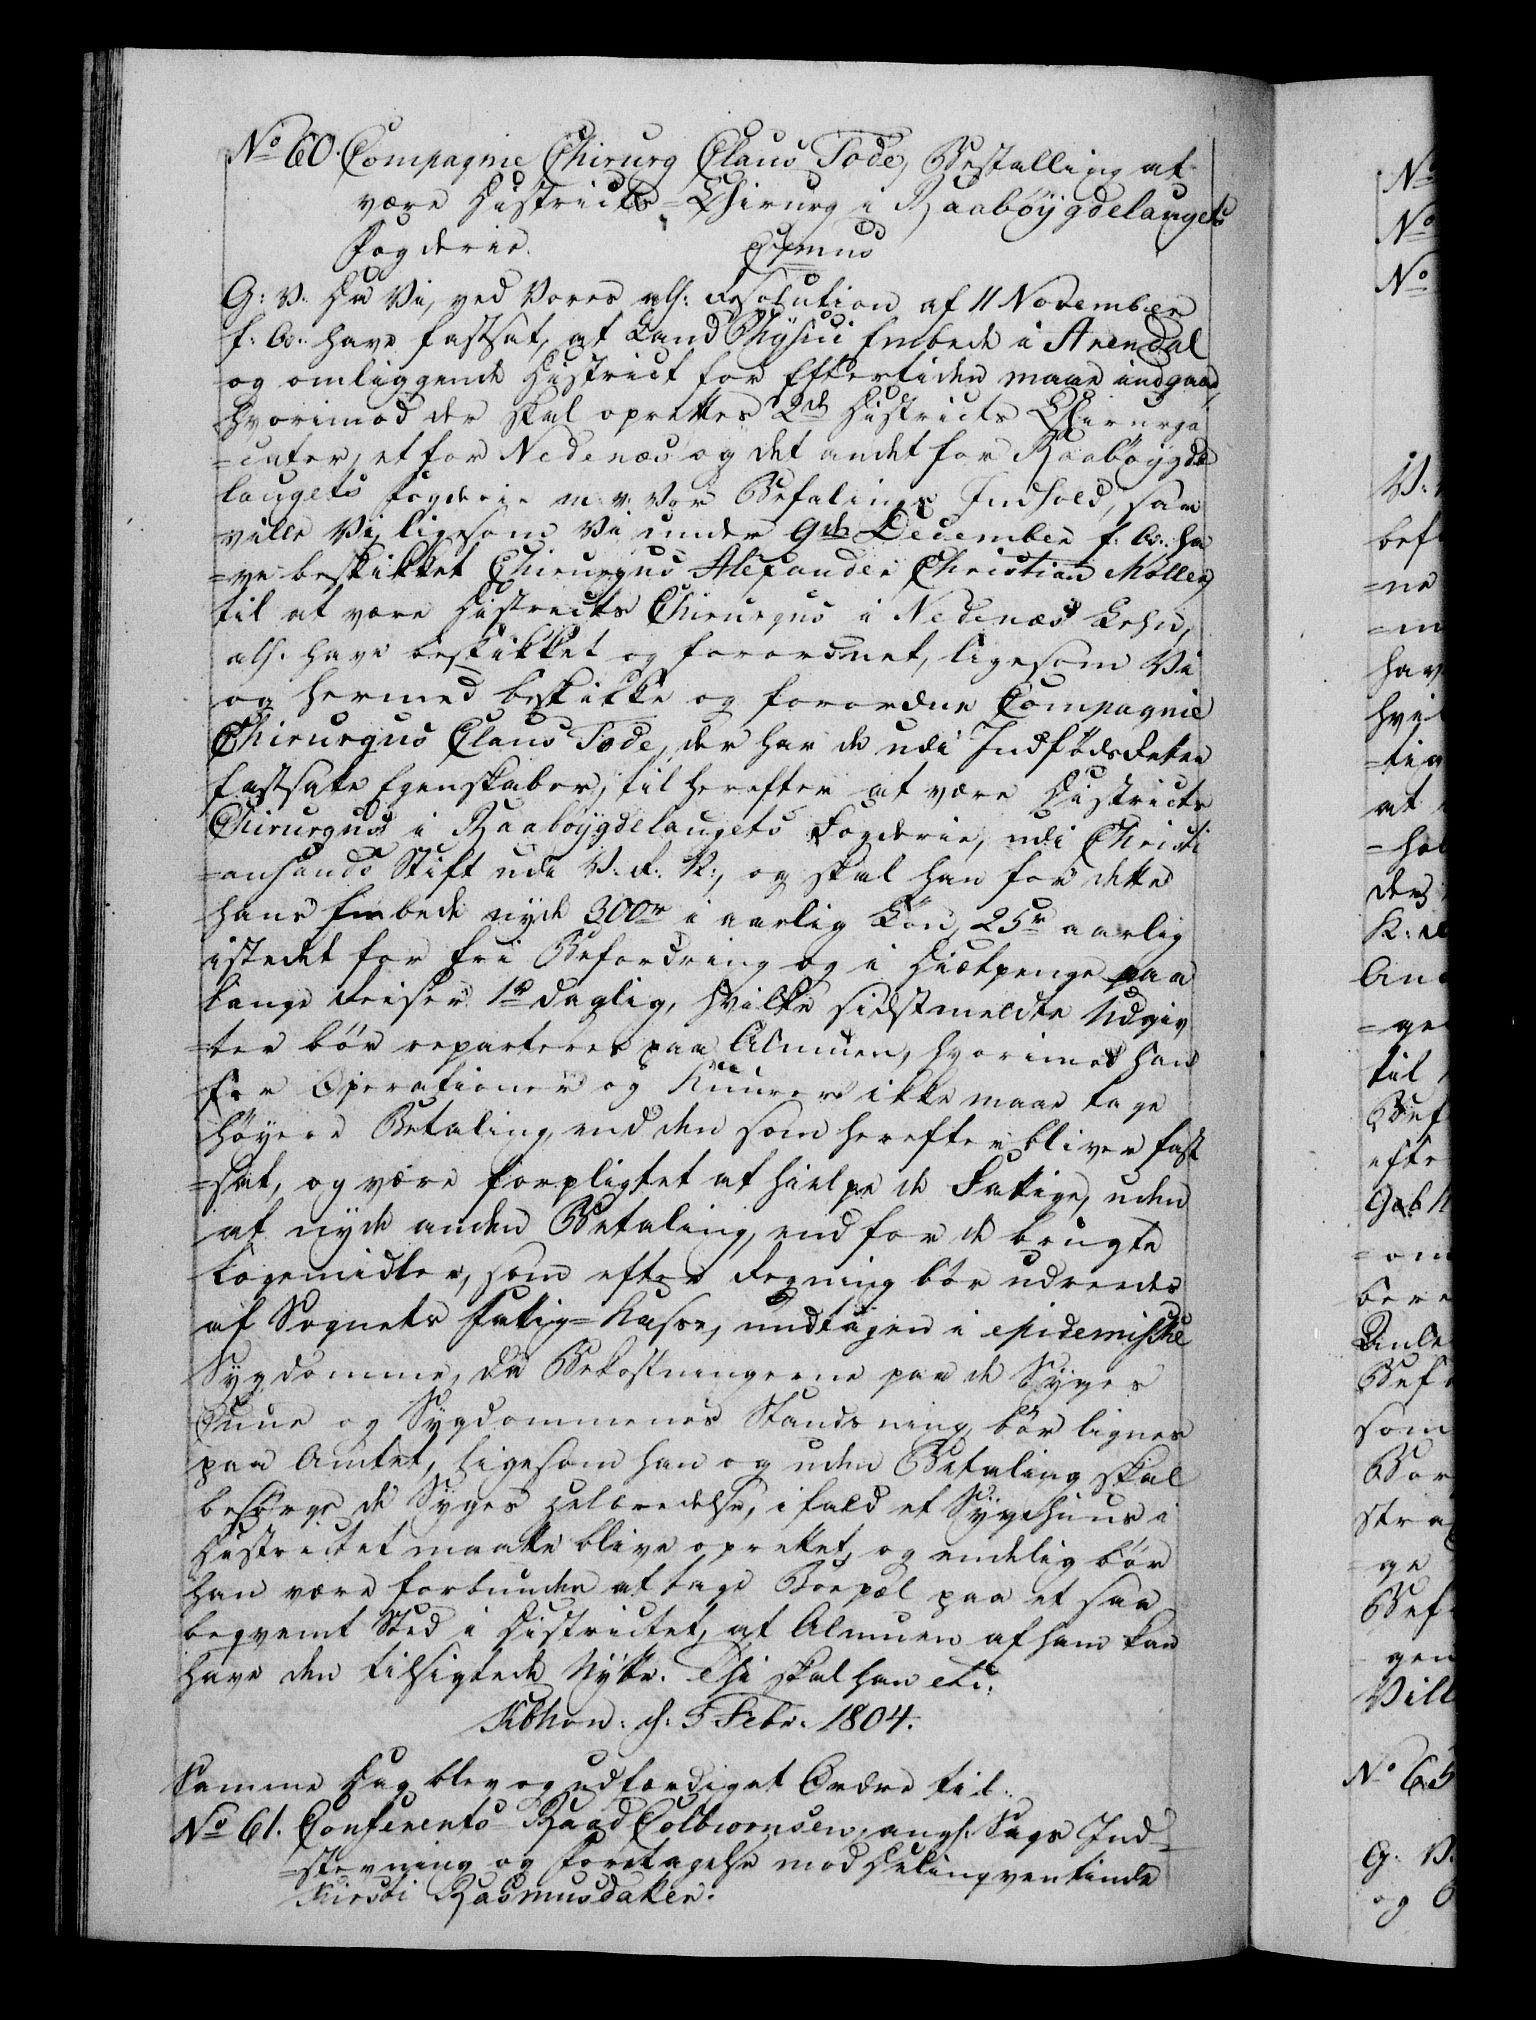 No 60. Compagnie Chirurg Claus Tode, Bestalling at
være Districts-Chirurg i Raabøygdelaugets
Fogderie. Osmus
G: V: Da Vi, ved Vores alf: Resolution af 11 November
f: A: have fastsat, at Land Physici Embede i Arendal
og omliggende District for Eftertiden maae indgaae,
hvorimod der skal oprettes 2de Districts Chirurgi
=cater, et for Nedenæs og det andet for Raabøygde
laugets Fogderie m: v: Vor Befalings Indhold, saa
ville Vi, ligesom Vi under 9de December f: A: ha
=ve beskikket Chirurgus Alexander Christian Møller,
til at være Districts Chirurgus i Nedenæs Lehn,
alf. have beskikket og forordnet, ligesom Vi
og hermed beskikke og forordne Compagnie
Chirurgus Claus Tode, der har de udi Indfødsretten
fastsatte Egenskaber, til herefter at være Districts
Chirurgus i Raabøygdelaugets Fogderie, udi Christi
=ansands Stift udi V: R: N:, og skal han for dette
hans Embede nyde 300r i aarlig Løn, 25r aarlig
istedet for fri Befordring og i Diætpenge paa
lange Reiser 1r daglig, hvilke sidstmeldte Udgiv
=ter bør reparteres paa Almuen, hvorimod han
for Operationer og Kuurer ikke maae tage
høyere Betaling, end den som herefter bliver fast
=sat, og være forpligtet at hielpe de Fattige, uden
at nyde anden Betaling, end for de brugte
Lægemidler, som efter Regning bør udredes
af Sognets Fattig-Kasse, undtagen i epidemiske
Sygdomme, da Bekostningerne paa de Syges
Cuur og Sygdommenes Standsning bør lignes
paa Amtet, ligesom han og uden Betaling skal
besørge de Syges Helbredelse, ifald et Sygehuus i
Districtet maatte blive oprettet, og endelig bør
han være forbunden at tage Boepæl paa et saa
beqvemt Sted i Districtet, at Almuen af ham kan
have den tilsigtede Nytte. Thi skal han etc:
Kbhvn. d: 5 Febr. 1804.
Samme Dag blev og udfærdiget Ordre til:
No 61. Conferents-Raad Colbiørnsen, angl: Sags Ind=
=stevning og Foretagelse mod Delinqventinde
Kirsti Rasmusdatter.
No
No
No
V:
bef
=ne
=m
hav
hvi
=tio
at
=hol
der
K:
And
=ge
til
Bef
efte
=om
bere
Anle
Bef
som
Bor
stra
ge
Bef
gen
Vill
No 65
G: V:
og